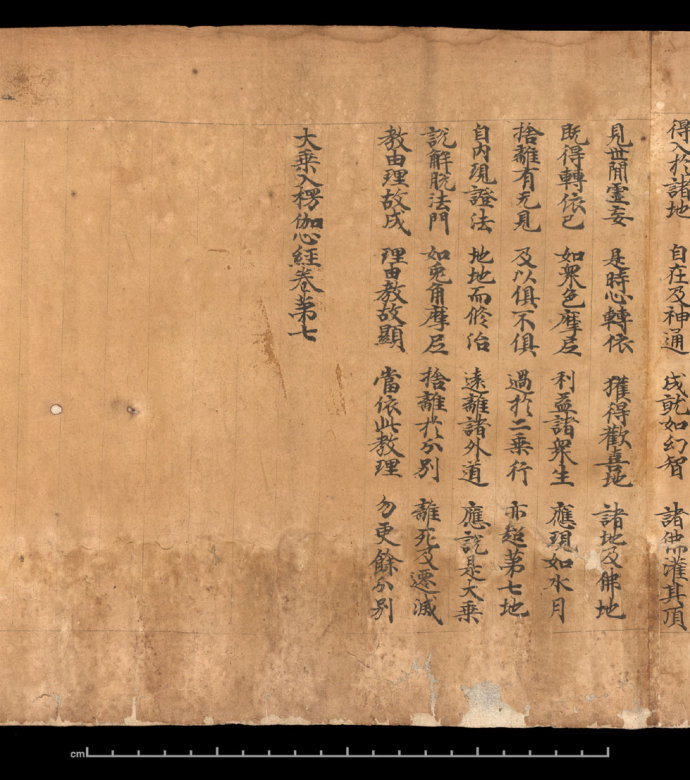 得入於諸地 自在及神通 成就如幻智 諸佛灌其頂
見世間虛妄 是時心轉依 獲得歡喜地 諸地及佛地
既得轉依已 如衆色摩尼 利益諸衆生 應現如水月
捨離有无見 及以俱不俱 過於二乘行 亦超第七地
自內現證法 地地而修治 遠離諸外道 應說是大乘
說解脫法門 如兎角摩尼 捨離於分別 離死及遷滅
教由理故成 理由教故顯 當依此教理 勿更餘分別
大乘入楞伽心經卷第七
cm